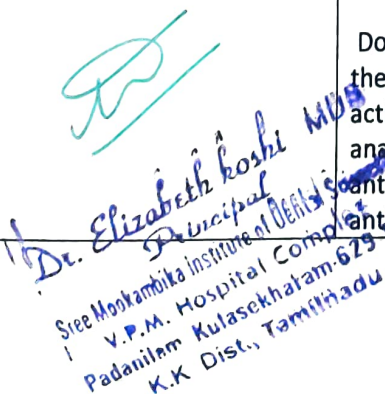 Do
the
act
ana
ant
ant
Dr. Elizabeth Koshi MDS
Principal
Sree Mookambika Institute of Dental
V.P.M. Hospital Complex
Padanilam Kulasekharam-629
K.K Dist., Tamilnadu